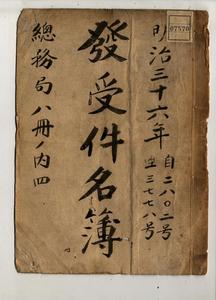 07570
明治三十六年
自二八〇二号
至三七七八号
發受件名簿
總務局八冊ノ内四